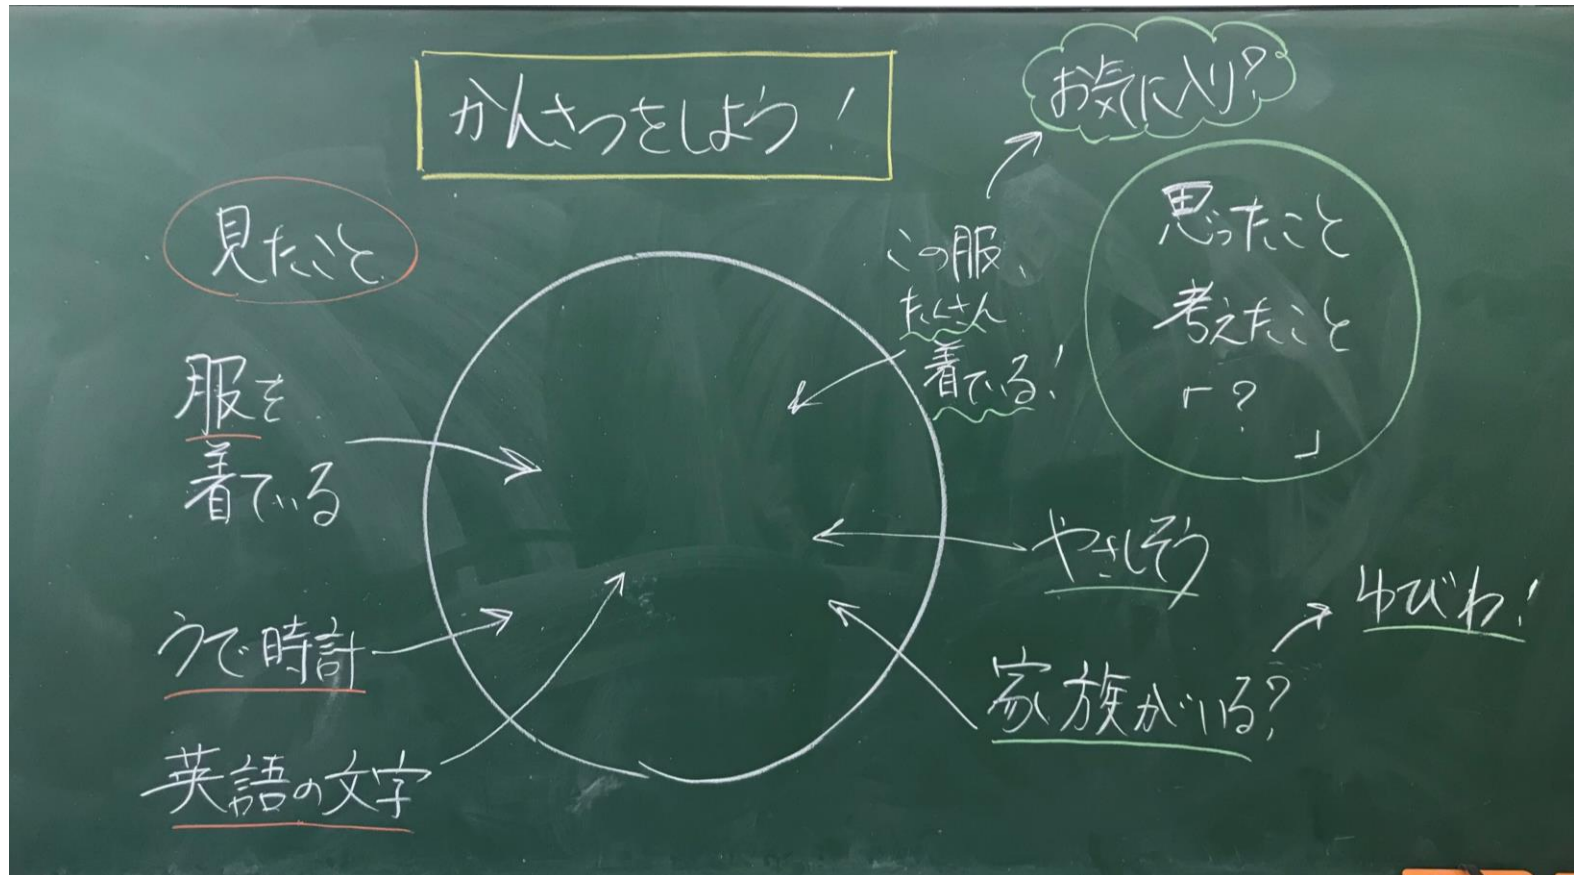 かんさつをしよう!
見たこと
服を
着ている
うで時計
英語の文字
お気に入り?
この服、
たくさん
着ている!
思ったこと
考えたこと
「?
」
やさしそう
家族がいる?
ゆびわ!